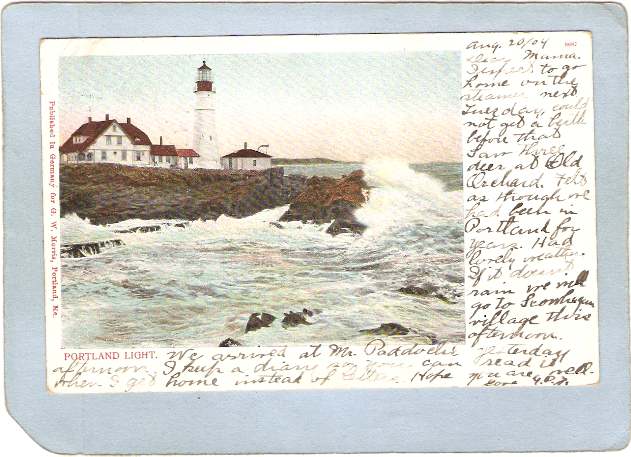 Aug. 20/04
Dear Mama.
I expect to go
home on the
steamer next
Tuesday, could
not get a birth
before that
Saw three
deer at Old
Orchard. Felt
as through we
had been in
Portland for
years. Had
lovely weather.
If it doesn't
rain we will
go to
village this
afternoon.
Published in Germany for G. W. Morris, Portland, Me.
PORTLAND LIGHT.
We arrived at Mr. Paddock's yesterday
afternoon, I kup a diary so you can read it
when I get home instead of letters. Hope you are well.
Love